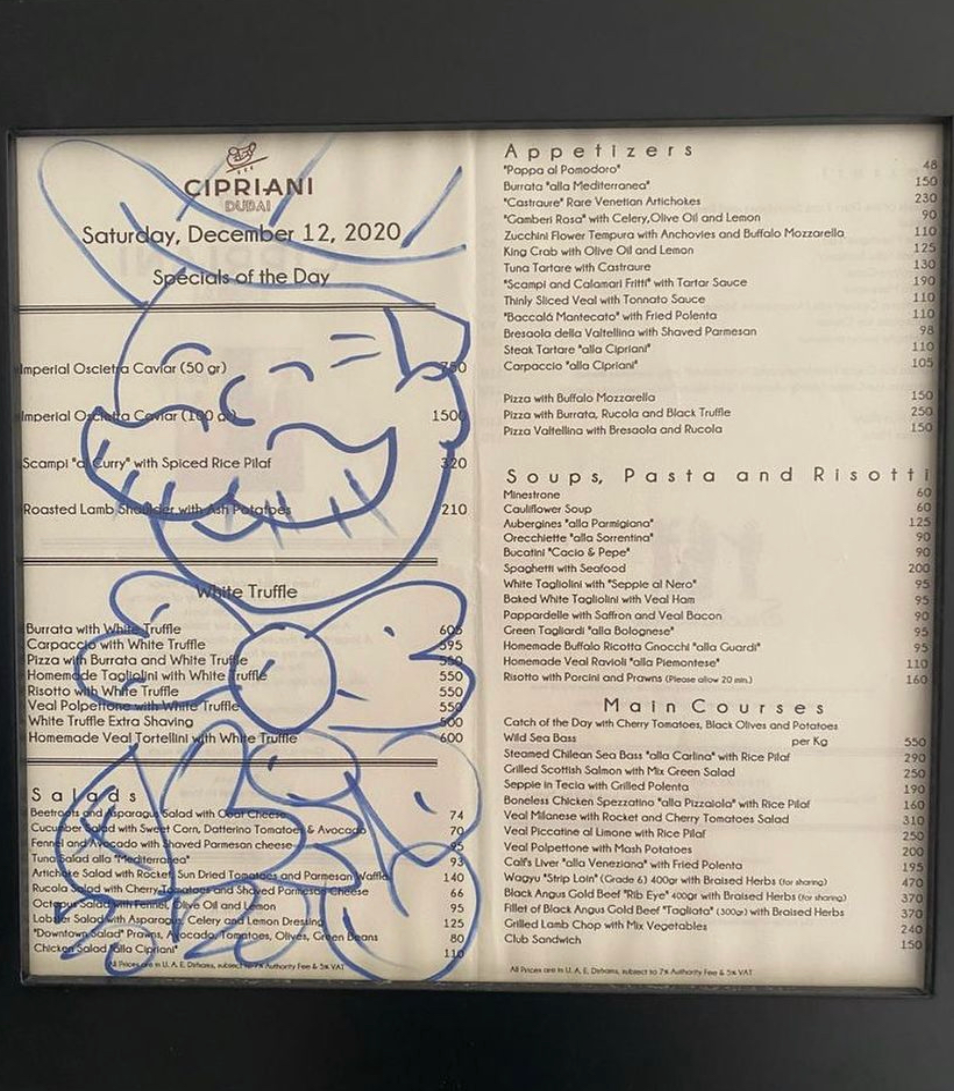 CIPRIANI
DUBAI
Saturday, December 12, 2020
Specials of the Day
Imperial Oscietra Caviar (50 gr) 750
Imperial Oscietra Caviar (100 gr) 1500
Scampi "al Curry" with Spiced Rice Pilaf 320
Roasted Lamb Shoulder with Ash Potatoes 210
White Truffle
Burrata with White Truffle 605
Carpaccio with White Truffle 595
Pizza with Burrata and White Truffle 550
Homemade Tagliolini with White Truffle 550
Risotto with White Truffle 550
Veal Polpettone with White Truffle 550
White Truffle Extra Shaving 500
Homemade Veal Tortellini with White Truffle 600
Salads
Beetroots and Asparagus Salad with Goat Cheese 74
Cucumber Salad with Sweet Corn, Datterino Tomatoes & Avocado 70
Fennel and Avocado with Shaved Parmesan cheese 95
Tuna Salad alla "Mediterranea" 93
Artichoke Salad with Rocket, Sun Dried Tomatoes and Parmesan Waffle 140
Rucola Salad with Cherry Tomatoes and Shaved Parmesan Cheese 66
Octopus Salad with Fennel, Olive Oil and Lemon 95
Lobster Salad with Asparagus, Celery and Lemon Dressing 125
"Downtown Salad" Prawns, Avocado, Tomatoes, Olives, Green Beans 80
Chicken Salad "alla Cipriani" 110
All Prices are in U. A. E. Dirhams, subject to 7% Authority Fee & 5% VAT
Appetizers
"Pappa al Pomodoro" 48
Burrata "alla Mediterranea" 150
"Castraure" Rare Venetian Artichokes 230
"Gamberi Rosa" with Celery,Olive Oil and Lemon 90
Zucchini Flower Tempura with Anchovies and Buffalo Mozzarella 110
King Crab with Olive Oil and Lemon 125
Tuna Tartare with Castraure 130
"Scampi and Calamari Fritti" with Tartar Sauce 190
Thinly Sliced Veal with Tonnato Sauce 110
"Baccalá Mantecato" with Fried Polenta 110
Bresaola della Valtellina with Shaved Parmesan 98
Steak Tartare "alla Cipriani" 110
Carpaccio "alla Cipriani" 105
Pizza with Buffalo Mozzarella 150
Pizza with Burrata, Rucola and Black Truffle 250
Pizza Valtellina with Bresaola and Rucola 150
Soups, Pasta and Risotti
Minestrone 60
Cauliflower Soup 60
Aubergines "alla Parmigiana" 125
Orecchiette "alla Sorrentina" 90
Bucatini "Cacio & Pepe" 90
Spaghetti with Seafood 200
White Tagliolini with "Seppie al Nero" 95
Baked White Tagliolini with Veal Ham 95
Pappardelle with Saffron and Veal Bacon 90
Green Tagliardi "alla Bolognese" 95
Homemade Buffalo Ricotta Gnocchi "alla Guardi" 95
Homemade Veal Ravioli "alla Piemontese" 110
Risotto with Porcini and Prawns (Please allow 20 min.) 160
Main Courses
Catch of the Day with Cherry Tomatoes, Black Olives and Potatoes
Wild Sea Bass per Kg 550
Steamed Chilean Sea Bass "alla Carlina" with Rice Pilaf 290
Grilled Scottish Salmon with Mix Green Salad 250
Seppie in Tecia with Grilled Polenta 190
Boneless Chicken Spezzatino "alla Pizzaiola" with Rice Pilaf 160
Veal Milanese with Rocket and Cherry Tomatoes Salad 310
Veal Piccatine al Limone with Rice Pilaf 250
Veal Polpettone with Mash Potatoes 200
Calf's Liver "alla Veneziana" with Fried Polenta 195
Wagyu "Strip Loin" (Grade 6) 400gr with Braised Herbs (for sharing) 470
Black Angus Gold Beef "Rib Eye" 400gr with Braised Herbs (for sharing) 370
Fillet of Black Angus Gold Beef "Tagliata" (300gr) with Braised Herbs 370
Grilled Lamb Chop with Mix Vegetables 240
Club Sandwich 150
All Prices are in U. A. E. Dirhams, subject to 7% Authority Fee & 5% VAT